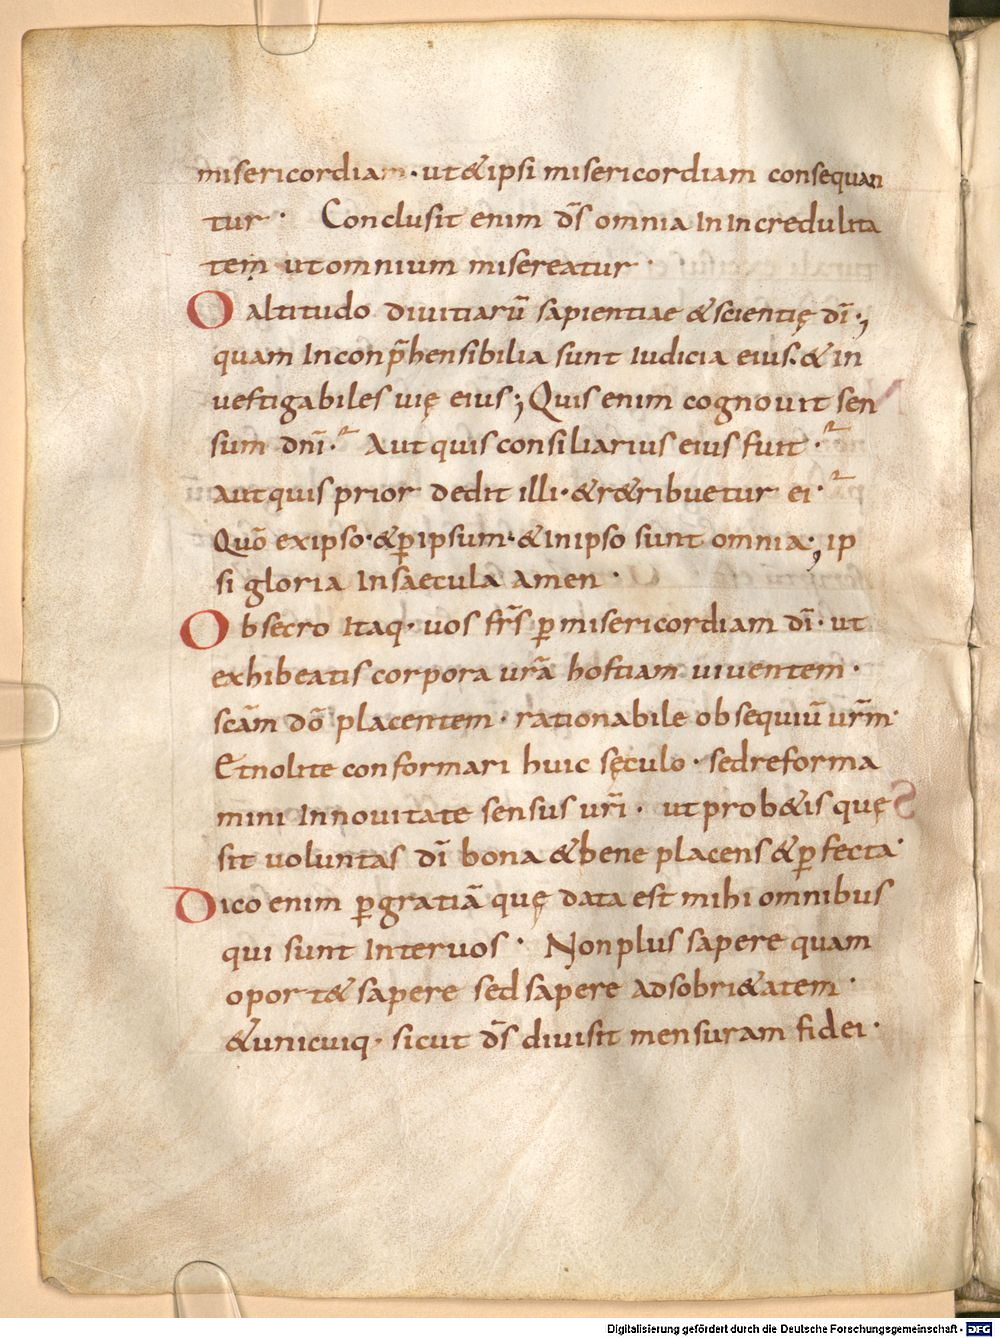 misericordiam · ut & ipsi misericordiam consequan
tur · Conclusit enim d̄s omnia In Incredulita
tem ut omnium misereatur ·
O altitudo diuitiarū sapientiae & scientię dī ·,
quam Inconp̄hensibilia sunt Iudicia eius · & in
uestigabiles uię eius ; Quis enim cognouit sen
sum dnī · Aut quis consiliarius eius fuit ·
aut quis prior dedit illi · & r&ribuetur ei ·
Quō ex ipso · & ꝑ ipsum · & In ipso sunt omnia ; ip
si gloria In saecula amen ·
Obsecro Itaq · uos fr̄s ꝑ misericordiam dī · ut
exhibeatis corpora urā hostiam uiuentem ·
scām dō placentem · rationabile obsequiū urm̄ ·
Et nolite conformari huic sęculo · sed reforma
mini In nouitate sensus urī · ut prob&is quę
sit uoluntas dī bona & bene placens & ꝑfecta ·
Dico enim ꝑ gratiā quę data est mihi omnibus
qui sunt Inter uos · Non plus sapere quam
oport& sapere sed sapere ad sobri&atem ·
& unicuiq · sicut d̄s diuisit mensuram fidei ·
Digitalisierung gefördert durch die Deutsche Forschungsgemeinschaft - DFG